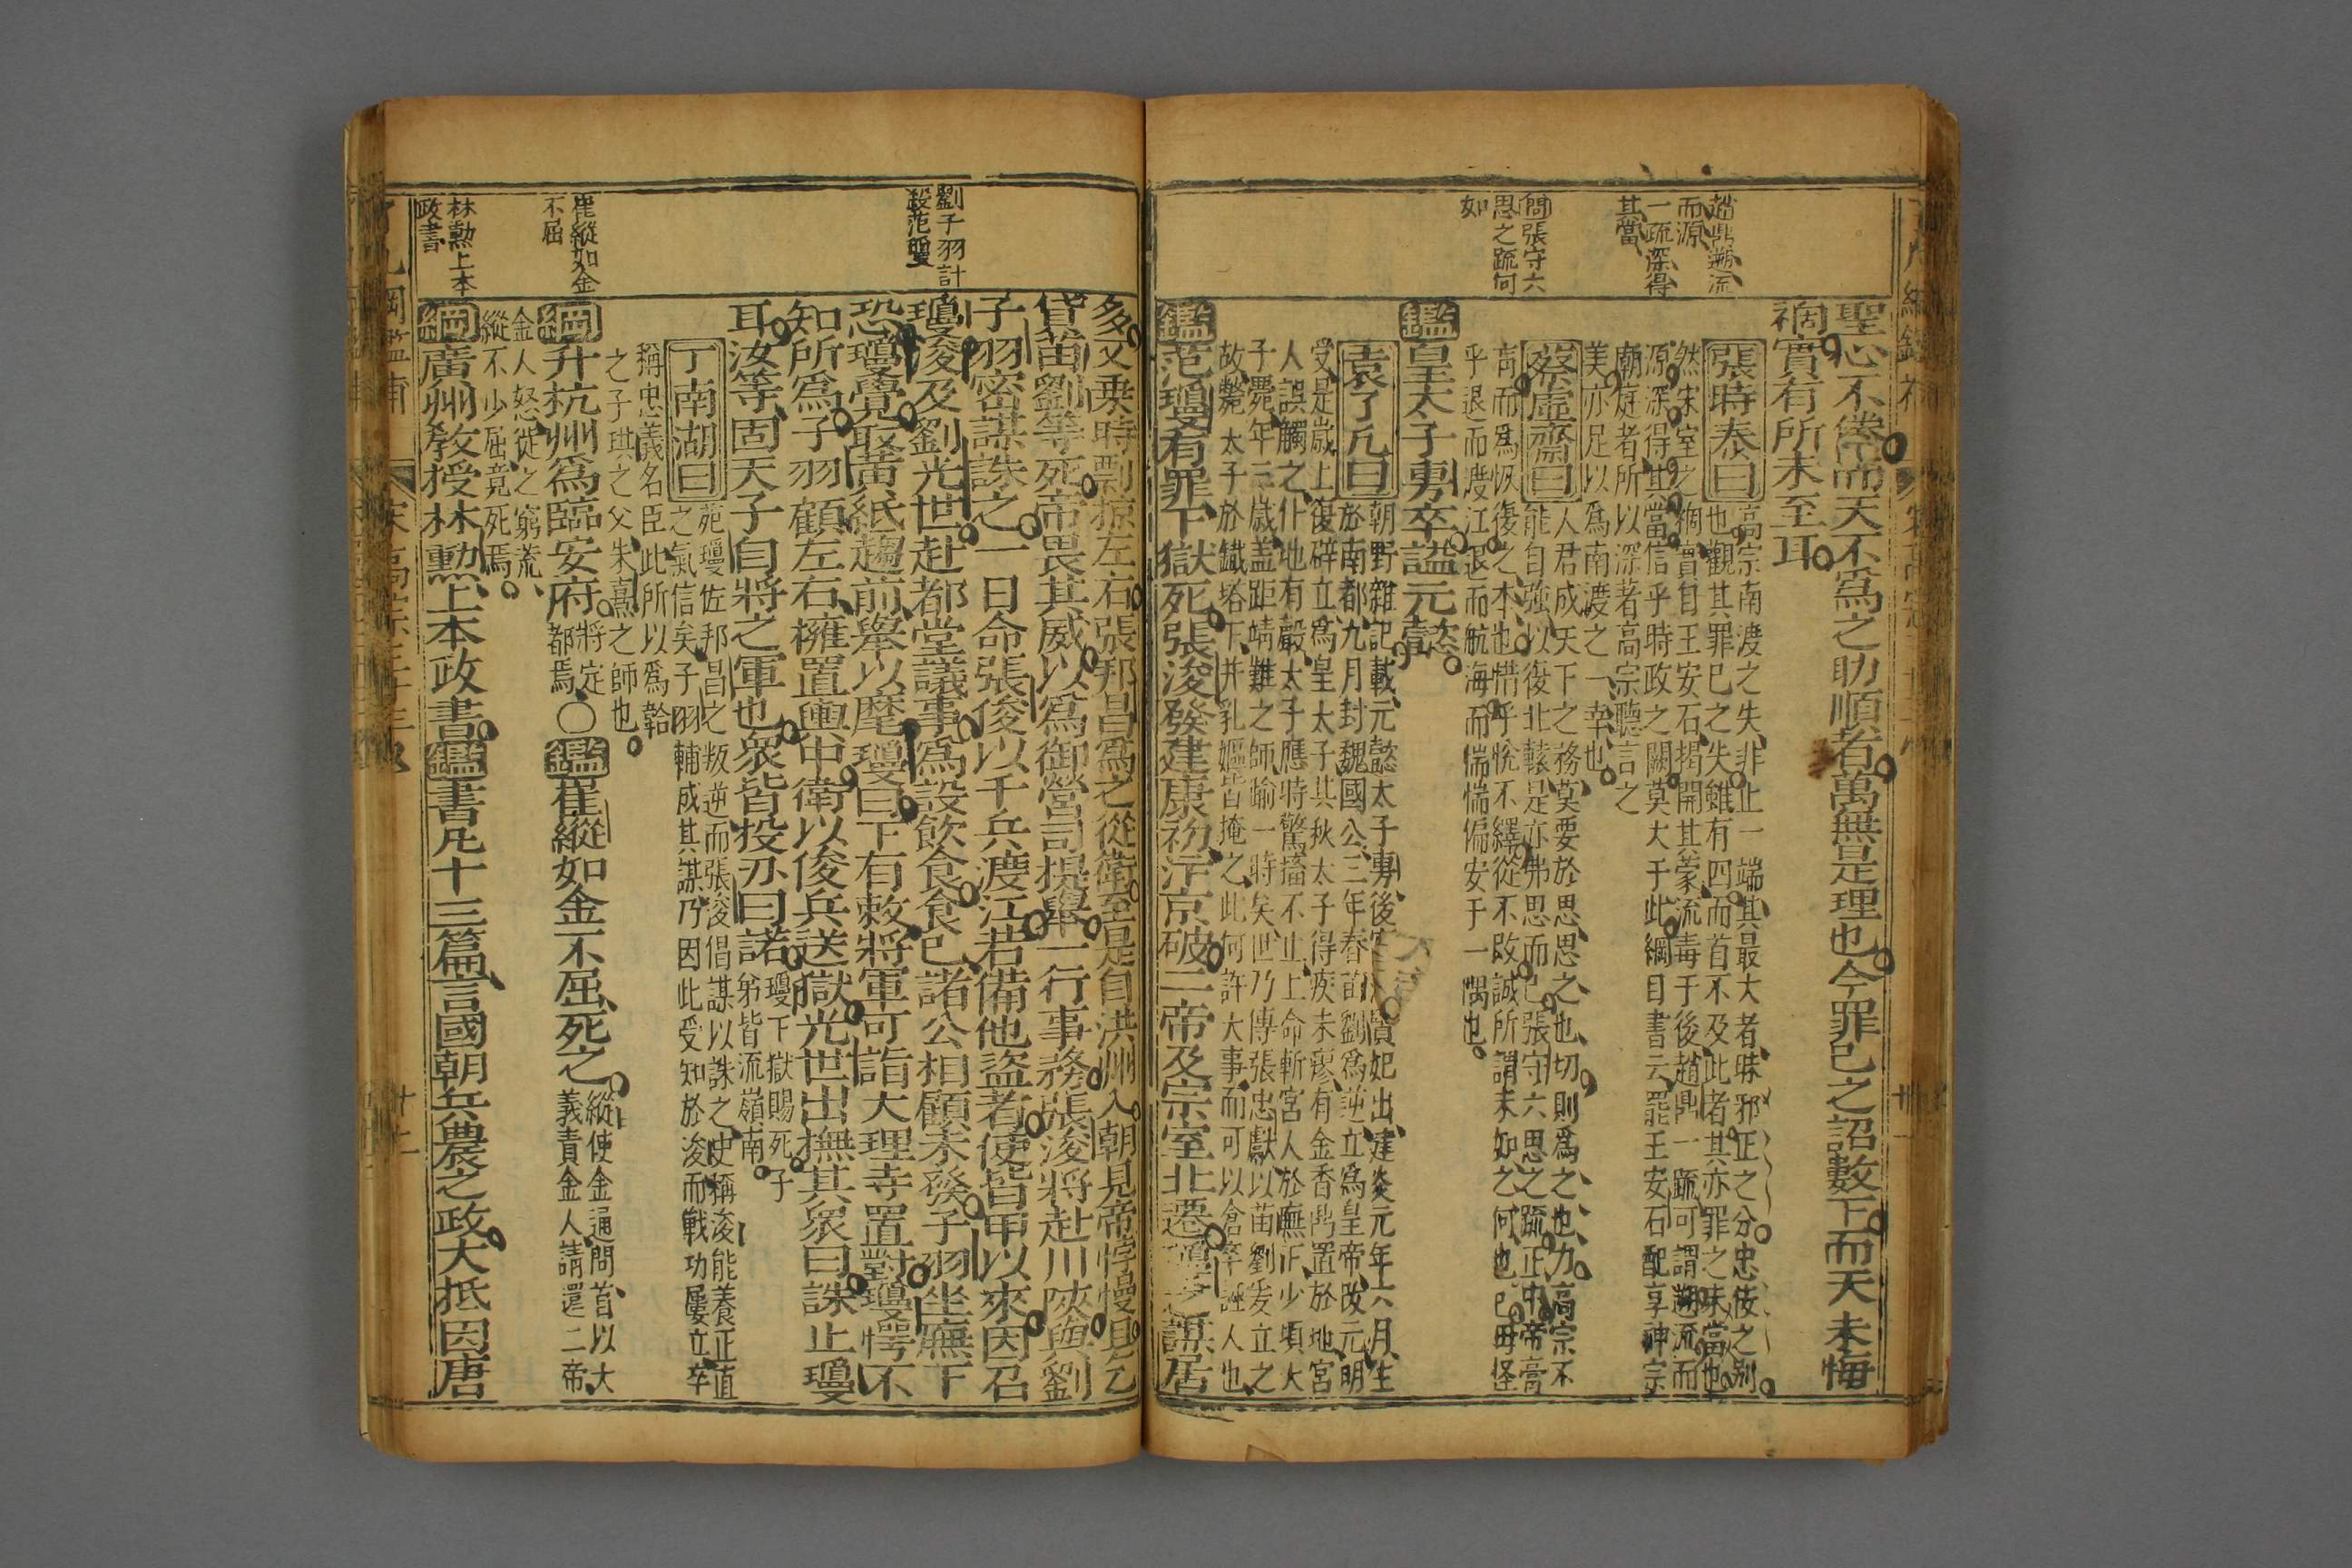 趙鼎遡流
而源
一疏深得
其當
問張守六
思之疏何
如
聖心不倦而天不爲之助順者萬無是理也今罪己之詔數下而天未悔
禍實有所未至耳
張時泰曰高宗南渡之失非止一端其最大者昧邪正之分忠佞之别
也觀其罪已之失雖有四而首不及此者其亦罪之味當也
然宋室之禍實自王安石揭開其蒙流毒于後趙鼎一疏可謂遡流而
源深得其當信乎時政之闕莫大于此綱目書云罷王安石配享神宗
廟庭者所以深著高宗聽言之
美亦足以爲南渡之一幸也
蔡虛齋曰人君成天下之務莫要於思思之也切則爲之也力高宗不
能自強以復北轅是亦弗思而已張守六思之疏正中帝膏
肓而爲恢復之本也惜乎悅不繹從不改誠所謂未如之何也已毋怪
乎退而渡江退而航海而惴惴偏安于一隅也
鑑皇太子旉卒謚元懿
袁了凡曰朝野雜記載元懿太子旉後宮潘賢妃出建炎元年六月生
於南都九月封魏國公三年春苗劉爲逆立爲皇帝改元明
受是歲上復辟立爲皇太子其秋太子得疾未瘳有金香鬥置於地宮
人誤觸之仆地有聲太子應時驚搐不止上命斬宮人於廡下少頃太
子薨年三歲盖距靖難之師踰一時矣世乃傳張忠獻以苗劉爰立之
故斃太子於鐵塔下并乳嫗皆掩之此何許大事而可以倉卒誣人也
鑑范瓊有罪下獄死張浚發建康初汴京破二帝及宗室北遷瓊之謀居
劉子羽計
殺范瓊
崔縱如金
不屈
林勲上本
政書
多又乗時剽掠左右張邦昌爲之從衛至是自洪州入朝見帝悖慢且乞
貸苗劉等死帝畏其威以爲御營司提舉一行事務張浚將赴川陝與劉
子羽密謀誅之一日命張俊以千兵渡江若備他盜者使皆甲以來因召
瓊浚及劉光世赴都堂議事爲設飲食食已諸公相顧未發子羽坐廡下
恐瓊覺取黃紙趨前舉以麾瓊曰下有敕將軍可詣大理寺置對瓊愕不
知所爲子羽顧左右擁置輿中衛以俊兵送獄光世出撫其衆曰誅止瓊
耳汝等固天子自將之軍也衆皆投刃曰諾瓊下獄賜死子
弟皆流嶺南
丁南湖曰范瓊佐邦昌之叛逆而張浚倡謀以誅之史稱浚能養正直
之氣信矣子羽輔成其謀乃因此受知於浚而戰功屢立卒
稱忠義名臣此所以爲韐
之子珙之父朱熹之師也
綱升杭州爲臨安府將定
都焉〇鑑崔縱如金不屈死之縱使金通問首以大
義責金人請還二帝
金人怒徙之窮荒
縱不少屈竟死焉
綱廣州教授林勲上本政書鑑書凡十三篇言國朝兵農之政大抵因唐